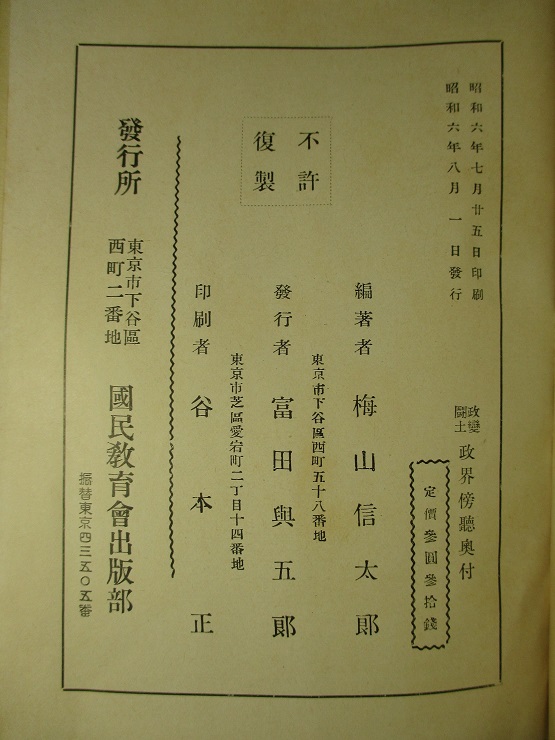 昭和六年七月廿五日印刷
昭和六年八月一日發行
政變
鬪士
政界傍聽奥付
定價參圓參拾錢
編著者 梅山信太郎
東京市下谷區西町五十八番地
發行者 富田與五郎
東京市芝區愛宕町二丁目十四番地
印刷者 谷本正
不許
復製
發行所
東京市下谷區
西町二番地
國民敎育會出版部
振替東京四三五〇五番